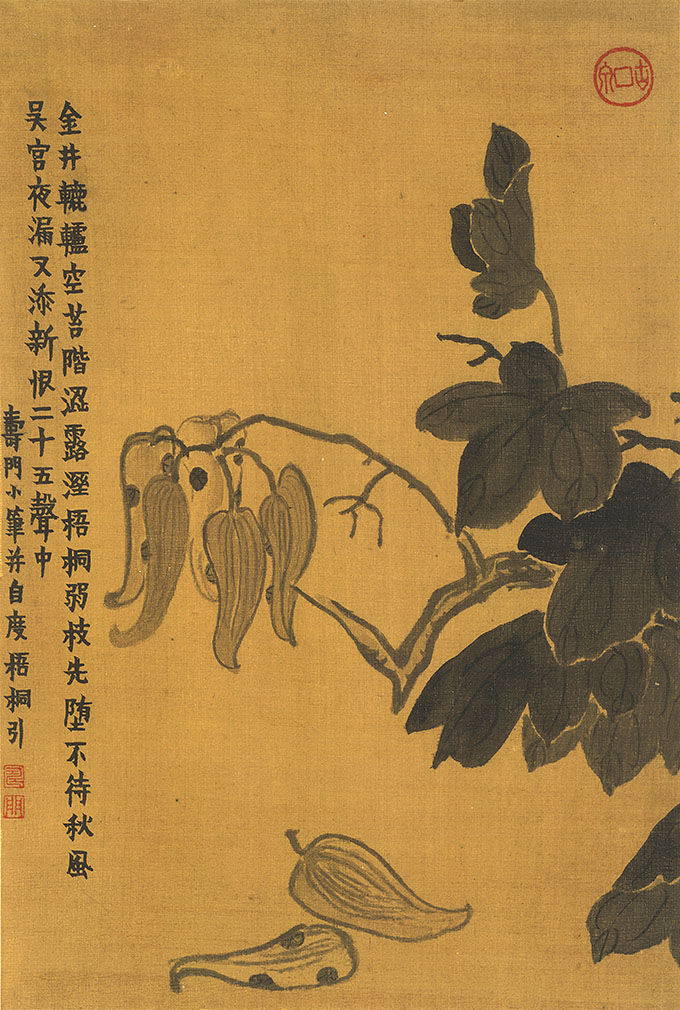 金井轆轤空苔階澀露溼梧桐弱枝先堕不待秋風
吴宮夜漏又添新恨二十五聲中
壽門小筆并自度梧桐引